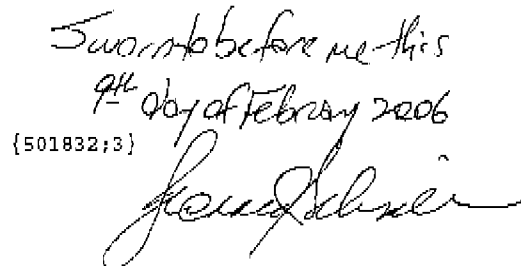 Sworn to before me this
9th day of February 2006
{501832;3}